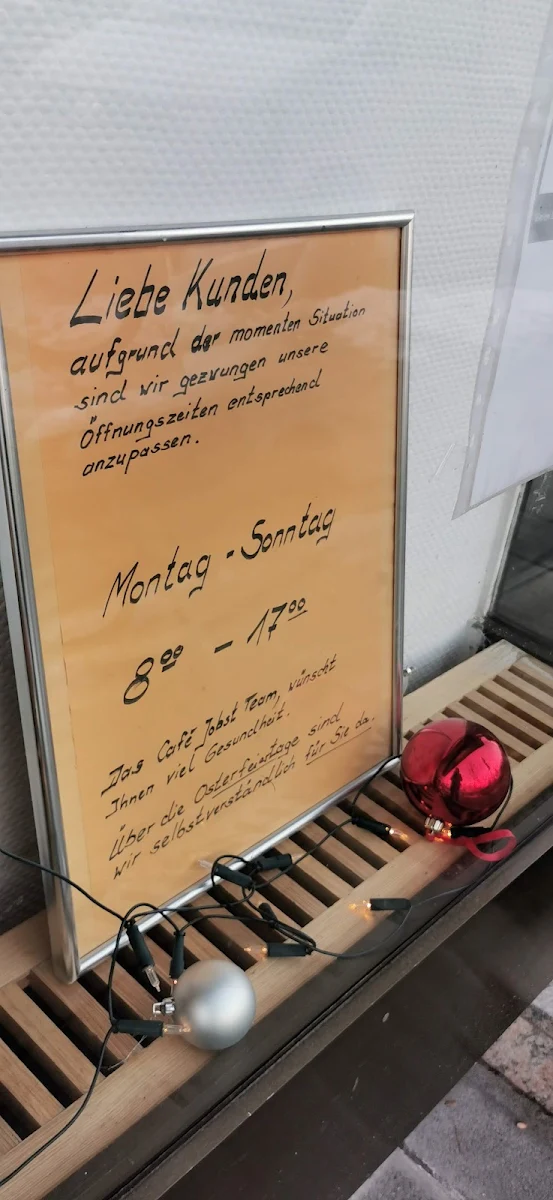 Liebe Kunden,
aufgrund der momenten Situation
sind wir gezwungen unsere
Öffnungszeiten entsprechend
anzupassen.
Montag - Sonntag
8⁰⁰ - 17⁰⁰
Das Café Jobst Team, wünscht
Ihnen viel Gesundheit.
Über die Osterfeiertage sind
wir selbstverständlich für Sie da.